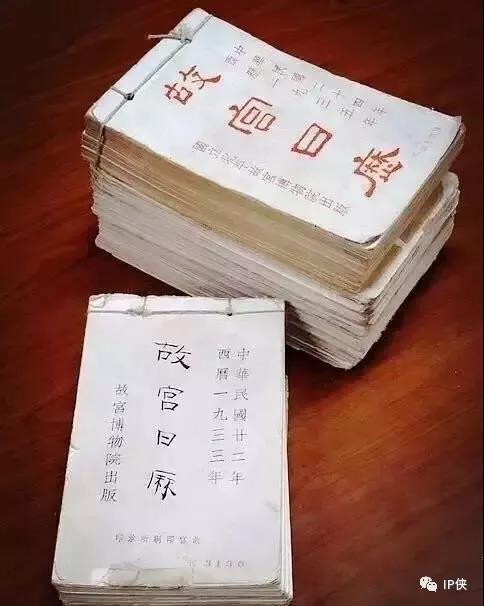 中華民國二十四年
西曆一九三五年
故宮日厤
國立北平故宮博物院出版
中華民國廿二年
西曆一九三三年
故宮日厤
故宮博物院出版
3130
IP侠